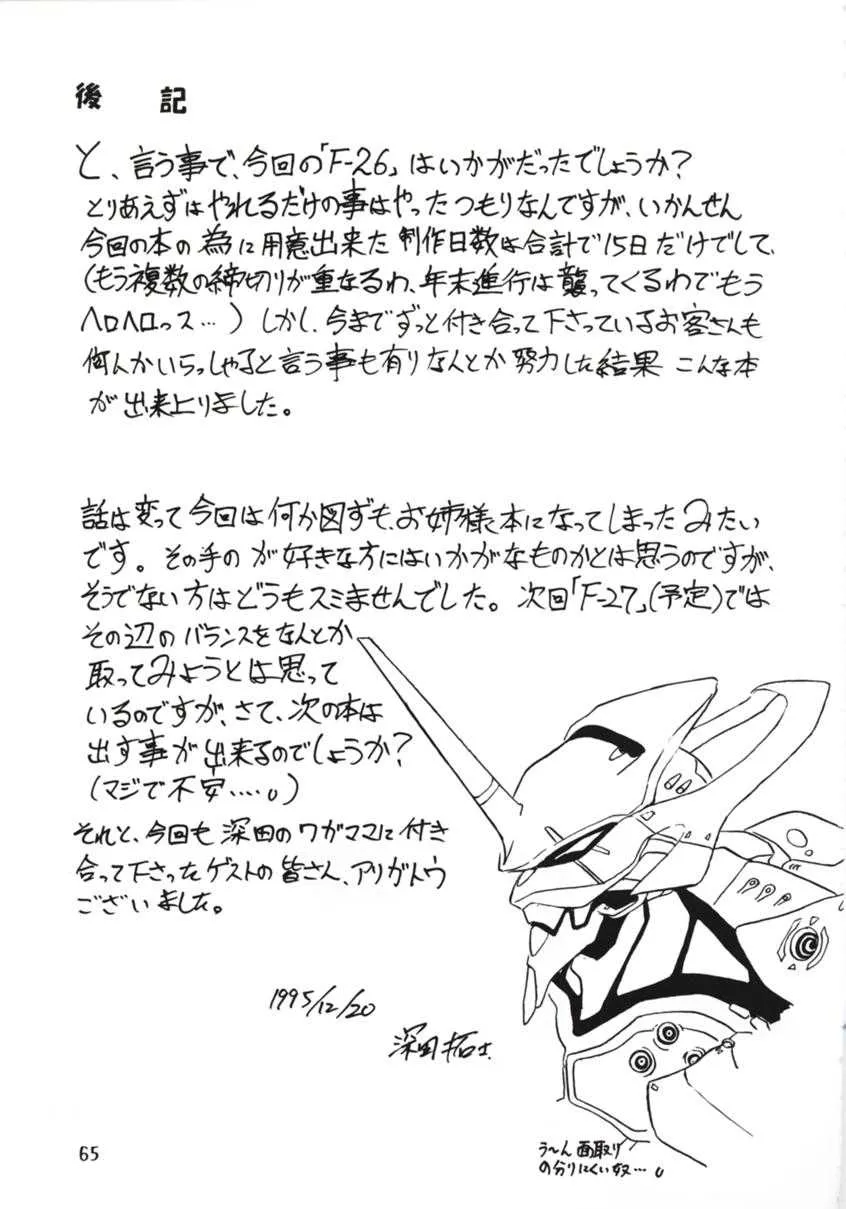 後　記
と、言う事で、今回の「F-26」はいかがだったでしょうか?
とりあえずはやれるだけの事はやったつもりなんですが、いかんせん
今回の本の為に用意出来た制作日数は合計で15日だけでして、
(もう複数の締切りが重なるわ、年末進行は襲ってくるわでもう
ヘロヘロっス…)しかし、今までずっと付き合って下さっているお客さんも
何人かいらっしゃると言う事も有りなんとか努力した結果 こんな本
が出来上りました。
話は変って今回は何か図ずも、お姉様本になってしまったみたい
です。その手のが好きな方にはいかがなものかとは思うのですが、
そうでない方はどうもスミませんでした。次回「F-27」(予定)では
その辺のバランスをなんとか
取ってみようとは思って
いるのですが、さて、次の本は
出す事が出来るのでしょうか?
(マジで不安……。)
それと、今回も深田のワガママに付き
合って下さったゲストの皆さん、アリガトウ
ございました。
1995/12/20
深田拓士
う〜ん面取り
の分りにくい奴…。
65